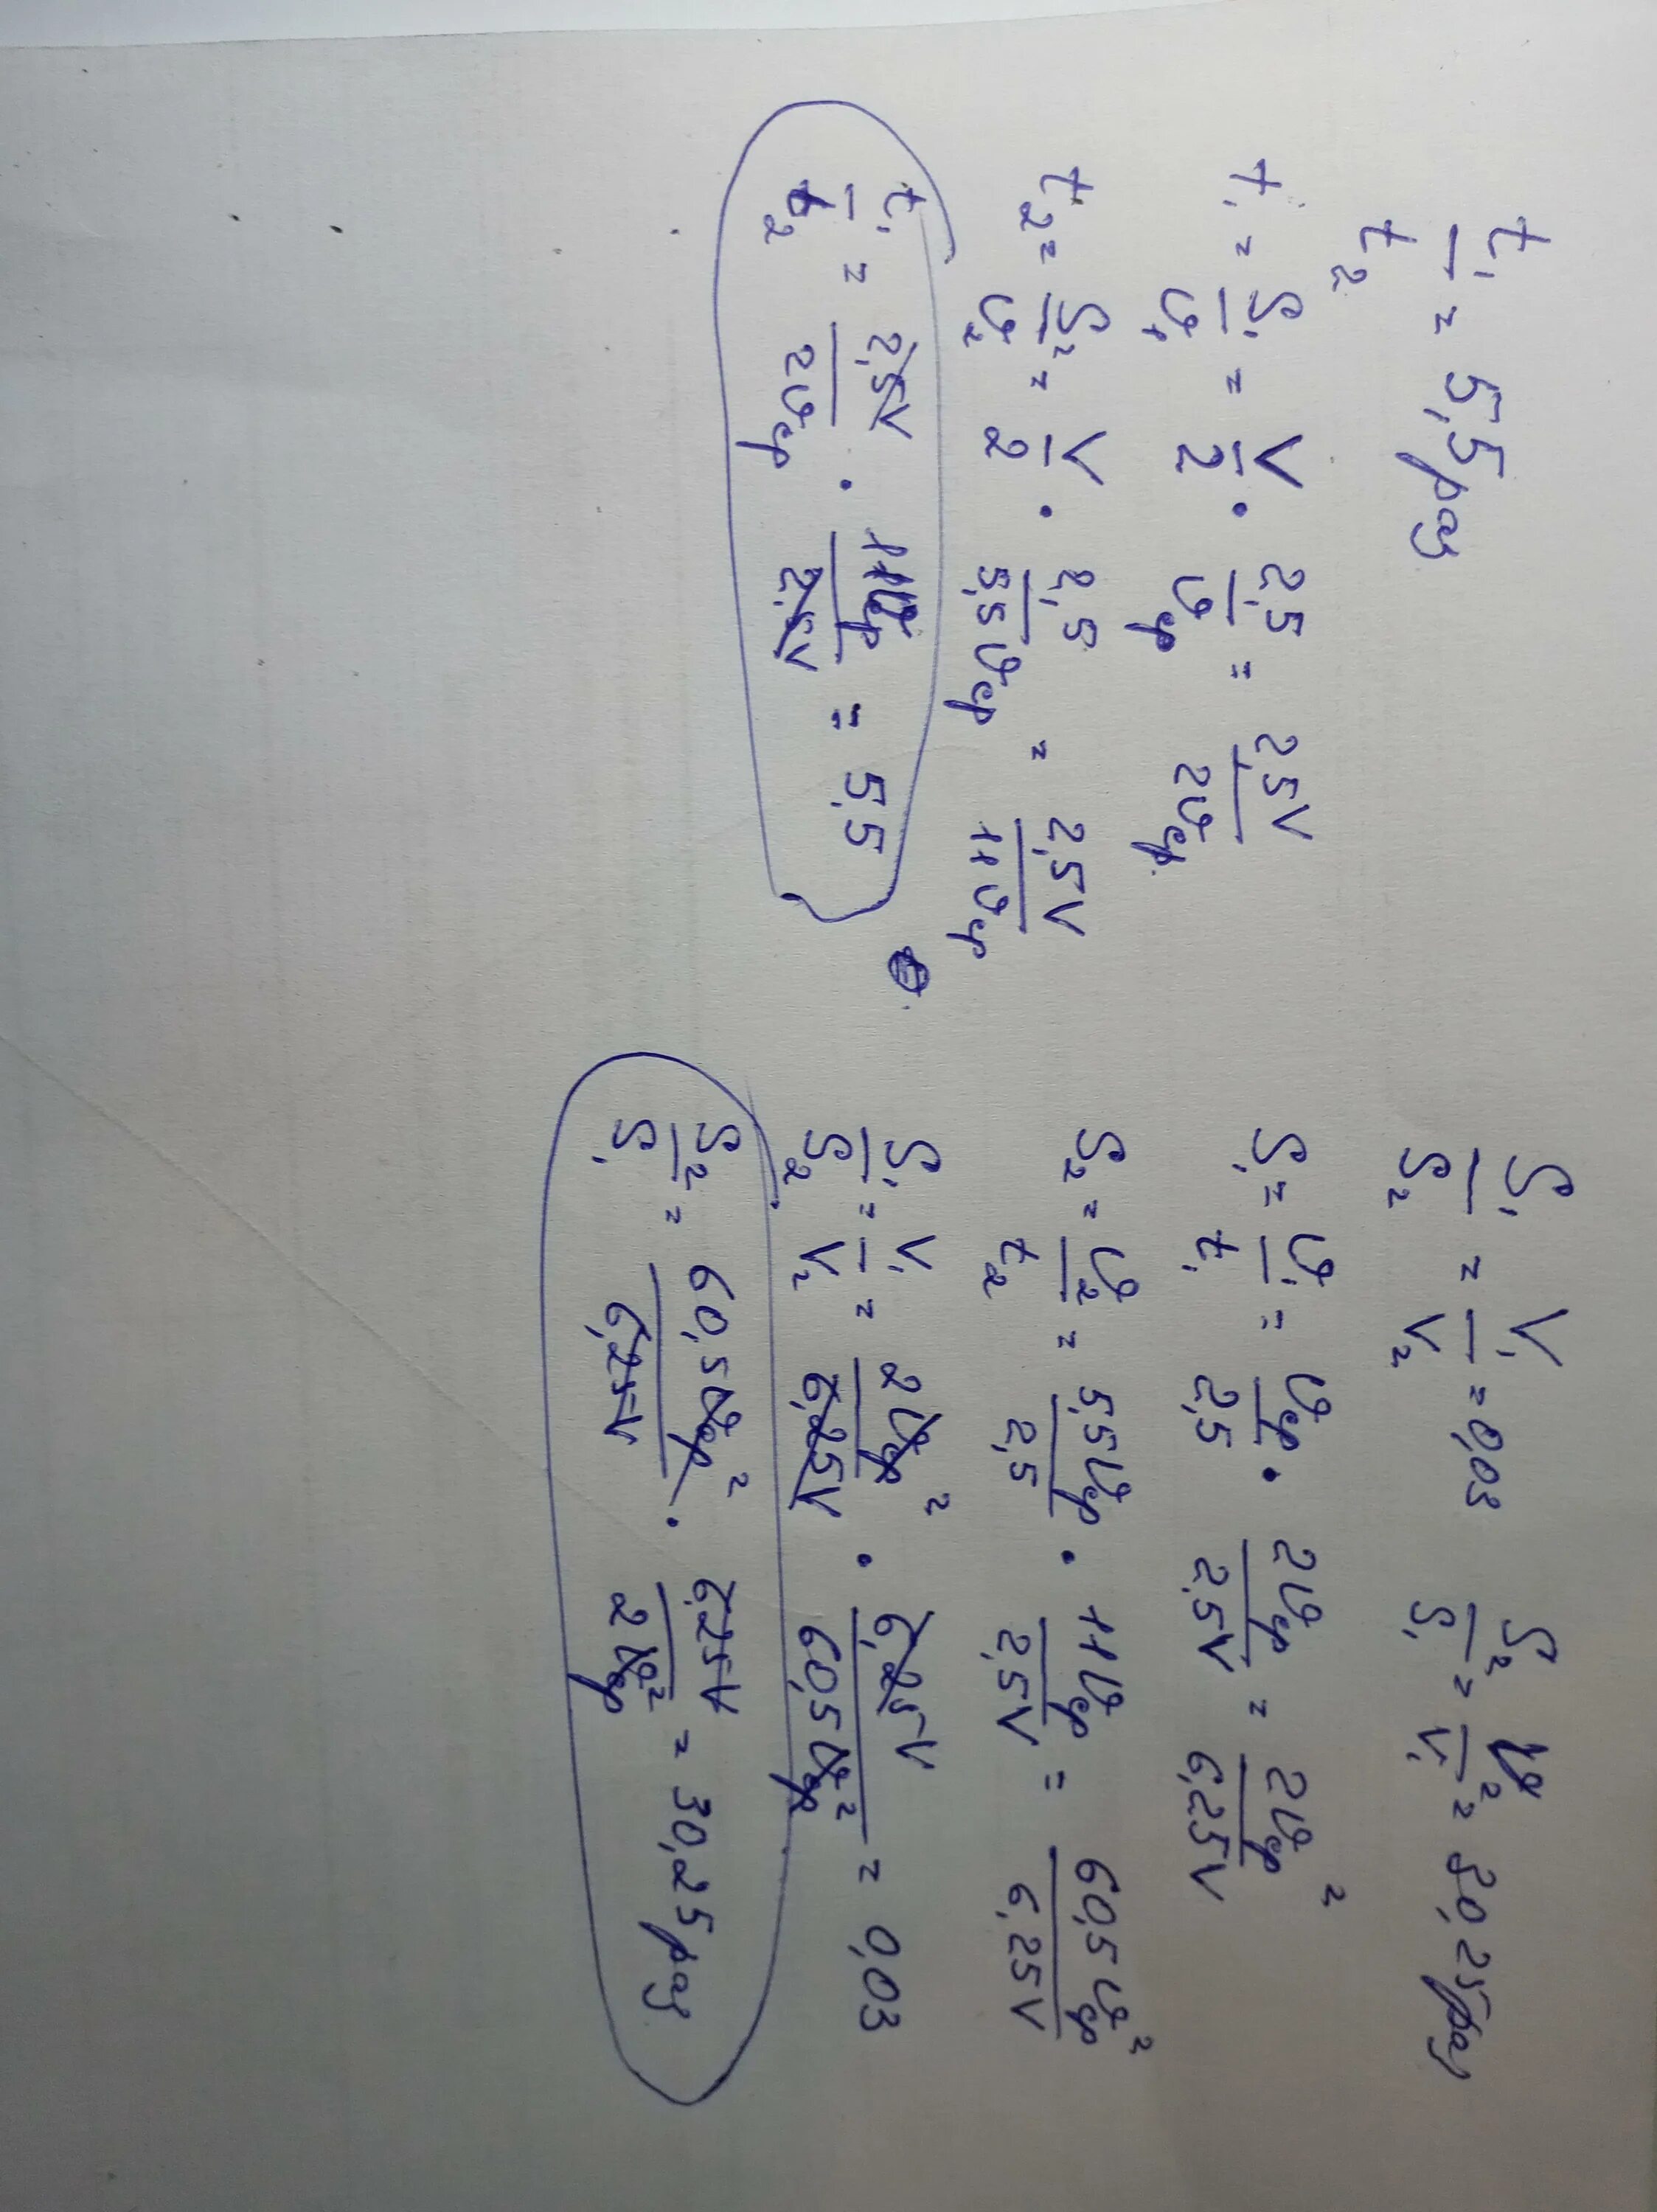 t₁/t₂ = 5,5 раз
t₁ = S₁/υ₁ = V/2 · 2,5/υср = 2,5V/2υср
t₂ = S₂/υ₂ = V/2 · 2,5/5,5υср = 2,5V/11υср
t₁/t₂ = 2,5V/2υср · 11υср/2,5V = 5,5
S₁/S₂ = V₁/V₂ = 0,03 S₂/S₁ = υ₂/V₁ = 30,25 раз
S₁ = υ₁/t₁ = υср/2,5 · 2υср/2,5V = 2υср²/6,25V
S₂ = υ₂/t₂ = 5,5υср/2,5 · 11υср/2,5V = 60,5υср²/6,25V
S₁/S₂ = V₁/V₂ = 2υср²/6,25V · 6,25V/60,5υср² = 0,03
S₂/S₁ = 60,5υср²/6,25V · 6,25V/2υср² = 30,25 раз